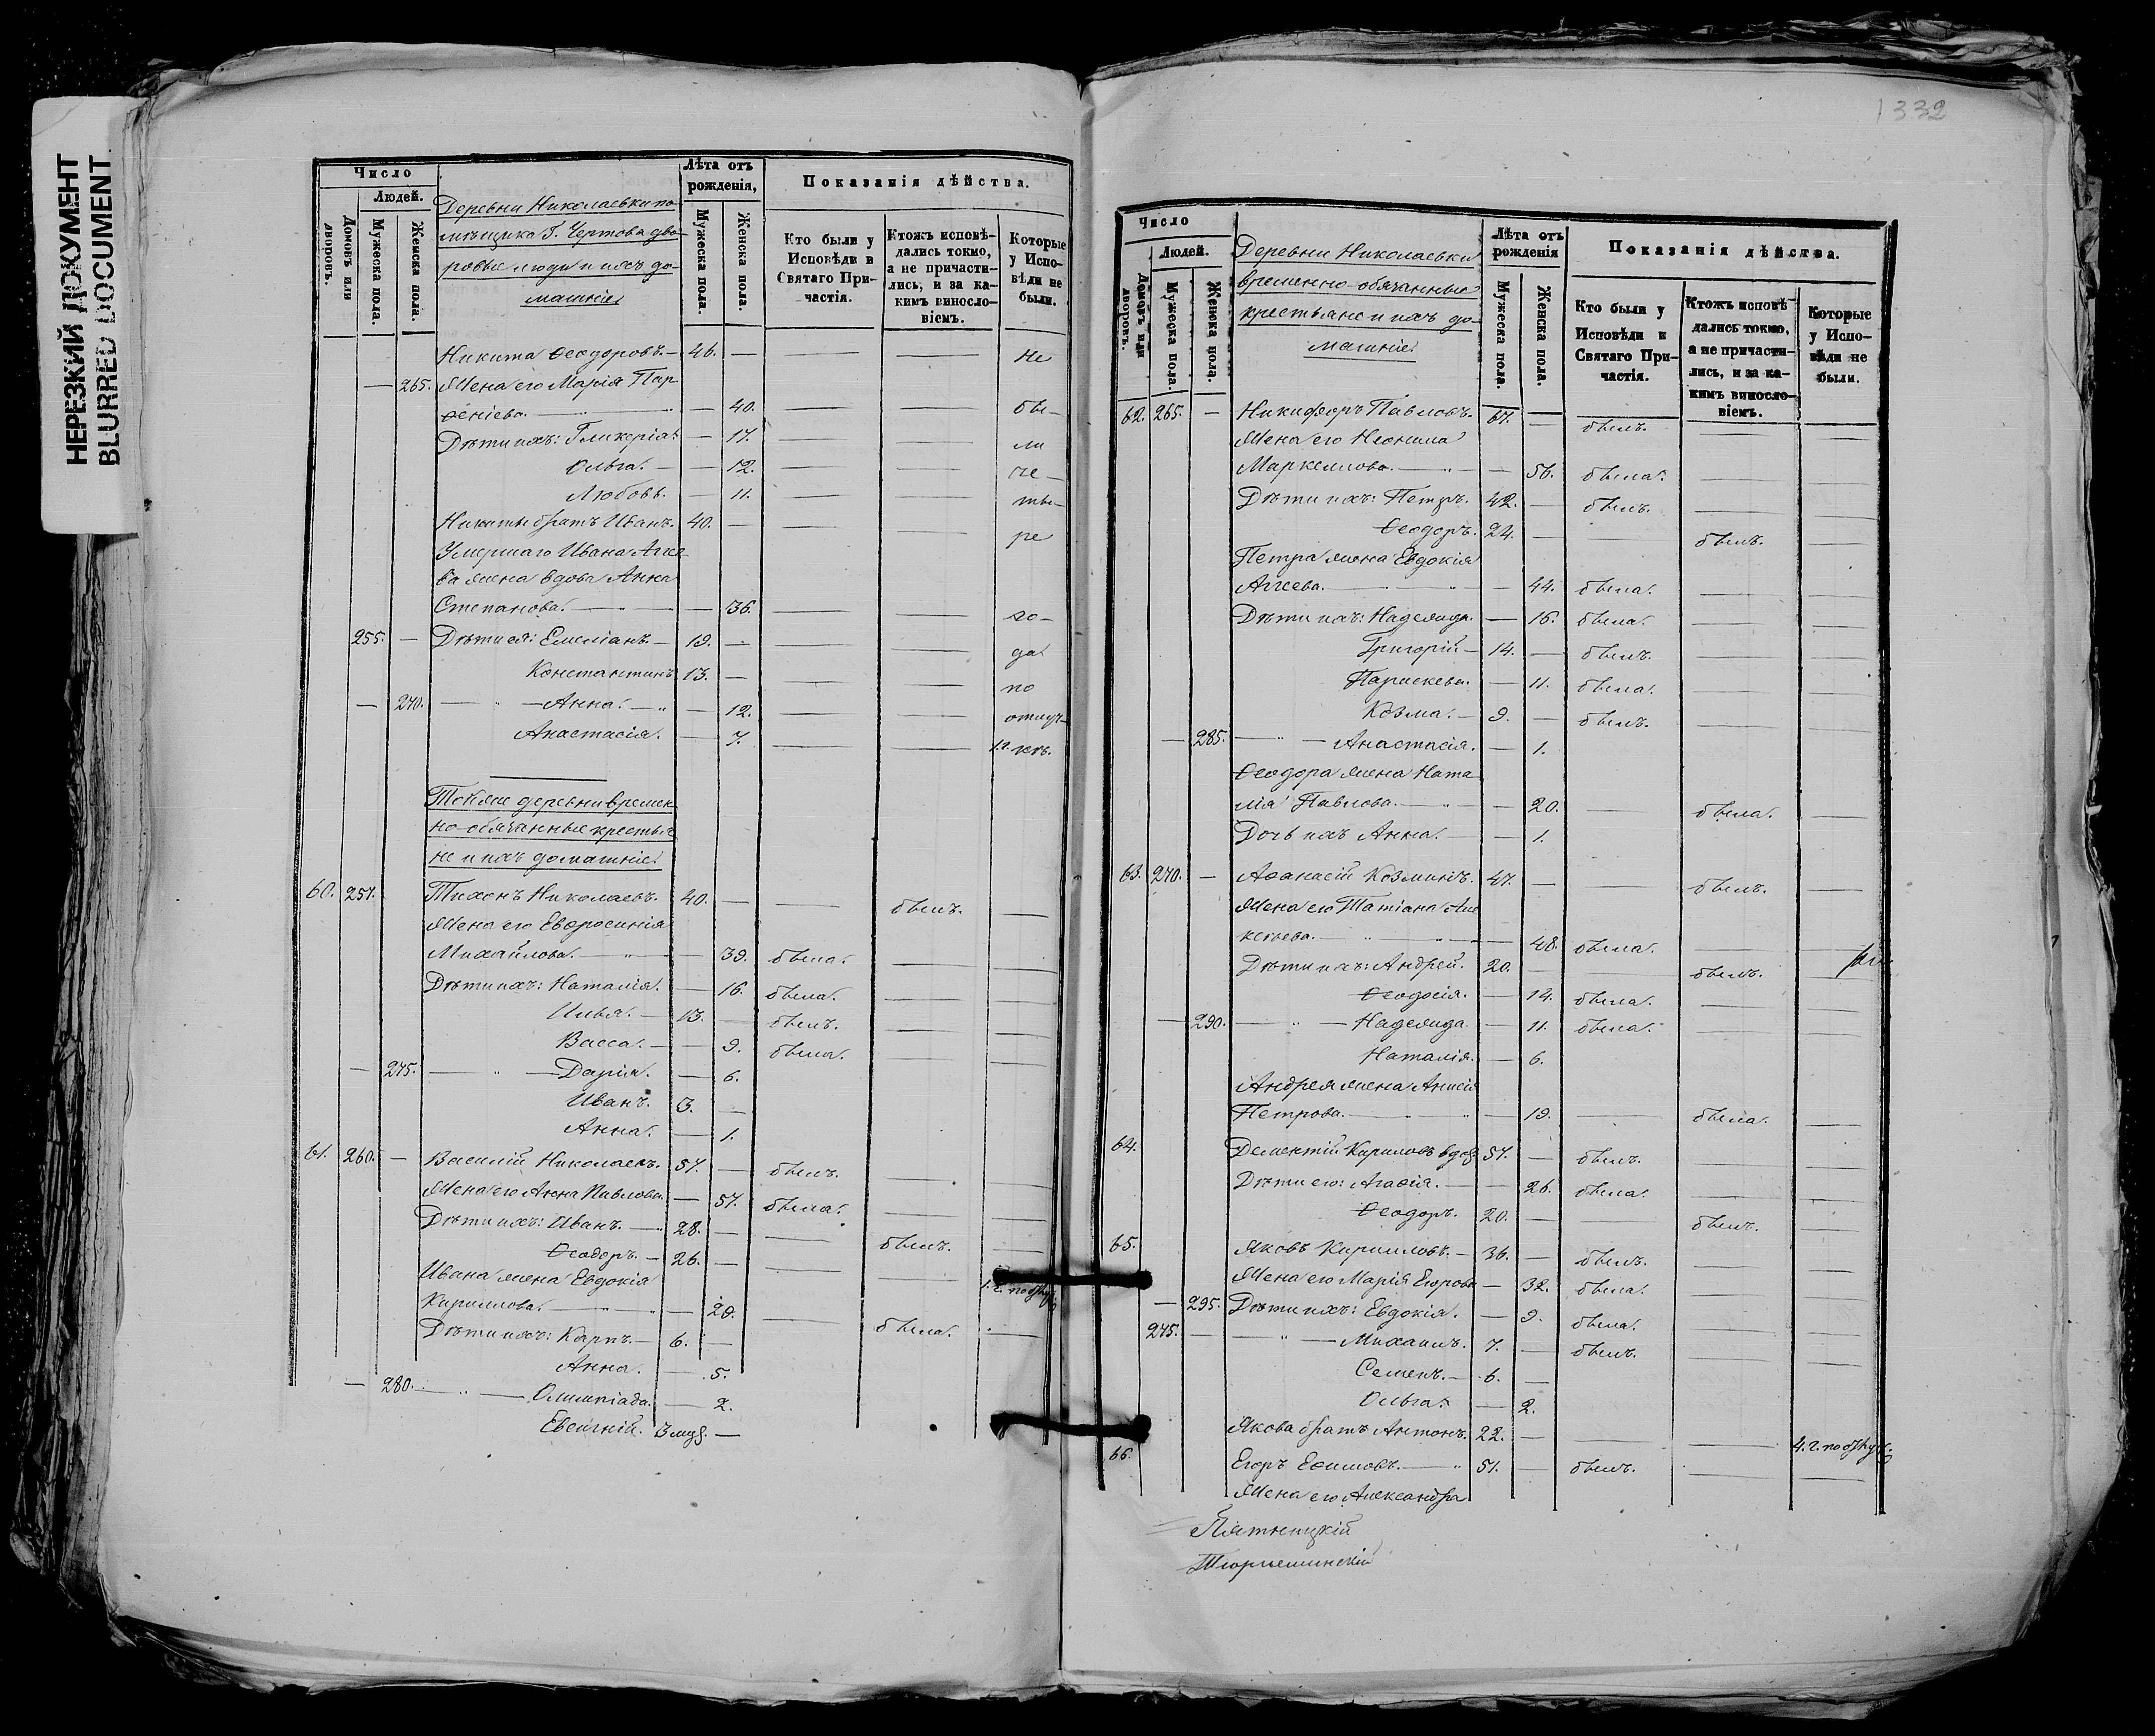 НЕРЕЗКИЙ ДОКУМЕНТ
BLURRED DOCUMENT
Число
Людей.
Домовъ или дворовъ.
Мужеска пола.
Женска пола.
Деревни Николаевки по-
мѣщика Г. Чертова дво-
ровые люди и ихъ до-
машніе
Лѣта отъ рожденія,
Мужеска пола.
Женска пола.
Показанія дѣйства.
Кто были у Исповѣди и Святаго При-частія.
Ктожъ исповѣ-дались токмо, а не причасти-лись, и за ка-кимъ винсло-віемъ.
Которые у Испо-вѣди не были.
Никита Ѳеодоровъ. — 46. — — — не
— 265. Жена его Марія Пар
ѳеніева. — 40. — — бы-
Дѣти ихъ: Гликерія. — 17. — — ли
Ольга. — 12. — — че-
Любовь. — 11. — — ты-
Никиты братъ Иванъ. 40. — — — ре
Умершаго Ивана Агѣе
ва жена вдова Анна
Степанова. — 36. — — го-
255. — Дѣти ея: Емеліанъ. — 19. — — — да
Константинъ 13. — — — по
— 270. — „ — Анна. — „ — 12. — — отлуч-
Анастасія. — 7. — — кѣ.
Той же деревни времен
но-обязанные крестья
не и ихъ домашніе.
60. 257. Тихонъ Николаевъ. 40. — — былъ. —
Жена его Евфросинія
Михайлова. — „ — 39. была. — —
Дѣти ихъ: Наталія. — 16. была. — —
Илья. — 13. — былъ. — —
Васса. — — 9. была. — —
— 275. — „ — Дарія. — 6.
Иванъ. 3. —
Анна. — 1.
61. 260. — Василій Николаевъ. 57. — былъ. — —
Жена его Анна Павлова. — 57. была. — —
Дѣти ихъ: Иванъ. — 28. — — былъ. —
Ѳеодоръ. — 26. — — 1. г. по
Ивана жена Евдокія
Кириллова. — „ — 28. — была. —
Дѣти ихъ: Карпъ. — 6. —
Анна. — 5.
— 280. — „ — Олимпіада. — 2.
Евѳигній. 3 мѣс. —
1332
Число
Людей.
Домовъ или дворовъ.
Мужеска пола.
Женска пола.
Деревни Николаевки
временно-обязанные
крестьяне и ихъ до-
машніе.
Лѣта отъ рожденія
Мужеска пола.
Женска пола.
Показанія дѣйства.
Кто были у Исповѣди и Святаго При-частія.
Ктожъ исповѣ-дались токмо, а не причасти-лись, и за ка-кимъ винсло-віемъ.
Которые у Испо-вѣди не были.
62. 265. — Никифоръ Павловъ. 67. — былъ. — —
Жена его Неонила
Маркеллова. — „ — 56. была. — —
Дѣти ихъ: Петръ. 42. — былъ. — —
Ѳеодоръ. 24. — — былъ. —
Петра жена Евдокія
Агѣева. — „ — 44. была. — —
Дѣти ихъ: Надежда. — 16. была. — —
Григорій — 14. — былъ. — —
Параскева. — 11. была. — —
Козма. — 9. — былъ. — —
— 285. — „ — Анастасія. — 1.
Ѳеодора жена Ната
лія Павлова. — „ — 20. — была. —
Дочь ихъ Анна. — — 1.
63. 270. — Аѳанасій Козминъ. 47. — — былъ. —
Жена его Татіана Але
ксѣева. — „ — „ — 48. была. — —
Дѣти ихъ: Андрей. 20. — — былъ. —
Ѳеодосія. — 14. была. — —
— 290. — „ — Надежда. — 11. была. — —
Наталія. — 6.
Андрея жена Анисія
Петрова. — „ — „ — 19. — была. —
64. Дементій Кириловъ вдов. 57. — былъ. — —
Дѣти его: Агаѳія. — — 26. была. — —
Ѳеодоръ. 20. — — былъ. —
65. Яковъ Кирилловъ. — 36. — былъ. — —
Жена его Марія Егорова — 32. была. — —
— 295. Дѣти ихъ: Евдокія. — 9. была. — —
275. — „ — Михаилъ. 7. — былъ. — —
Семенъ. — 6. —
Ольга. — 2.
Якова братъ Антонъ. 22. — — — 4. г. по
66. Егоръ Евѳимовъ. — „ 51. — былъ. — —
Жена его Александра
Пятницкій